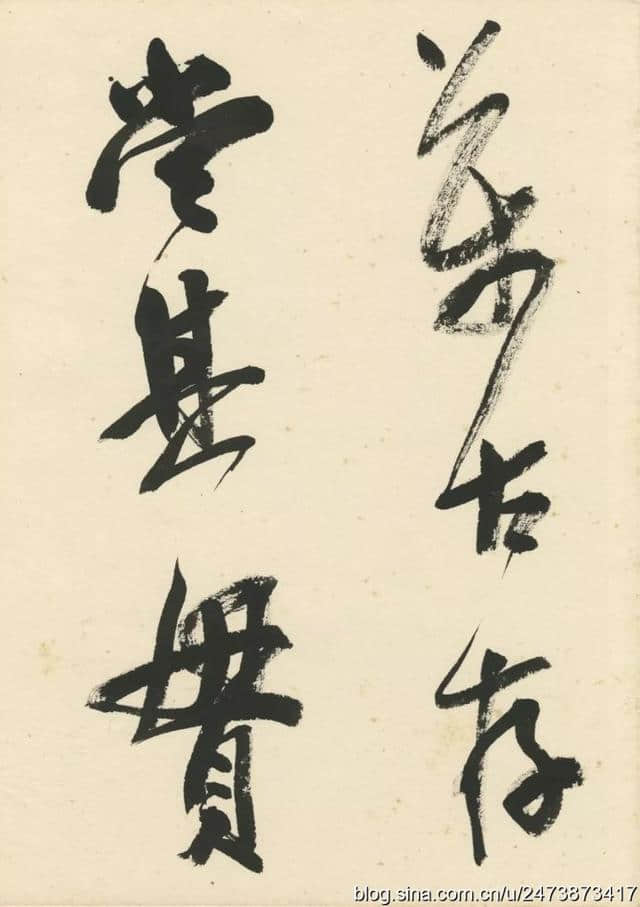 萬古存
當其貫
blog.sina.com.cn/u/2473873417